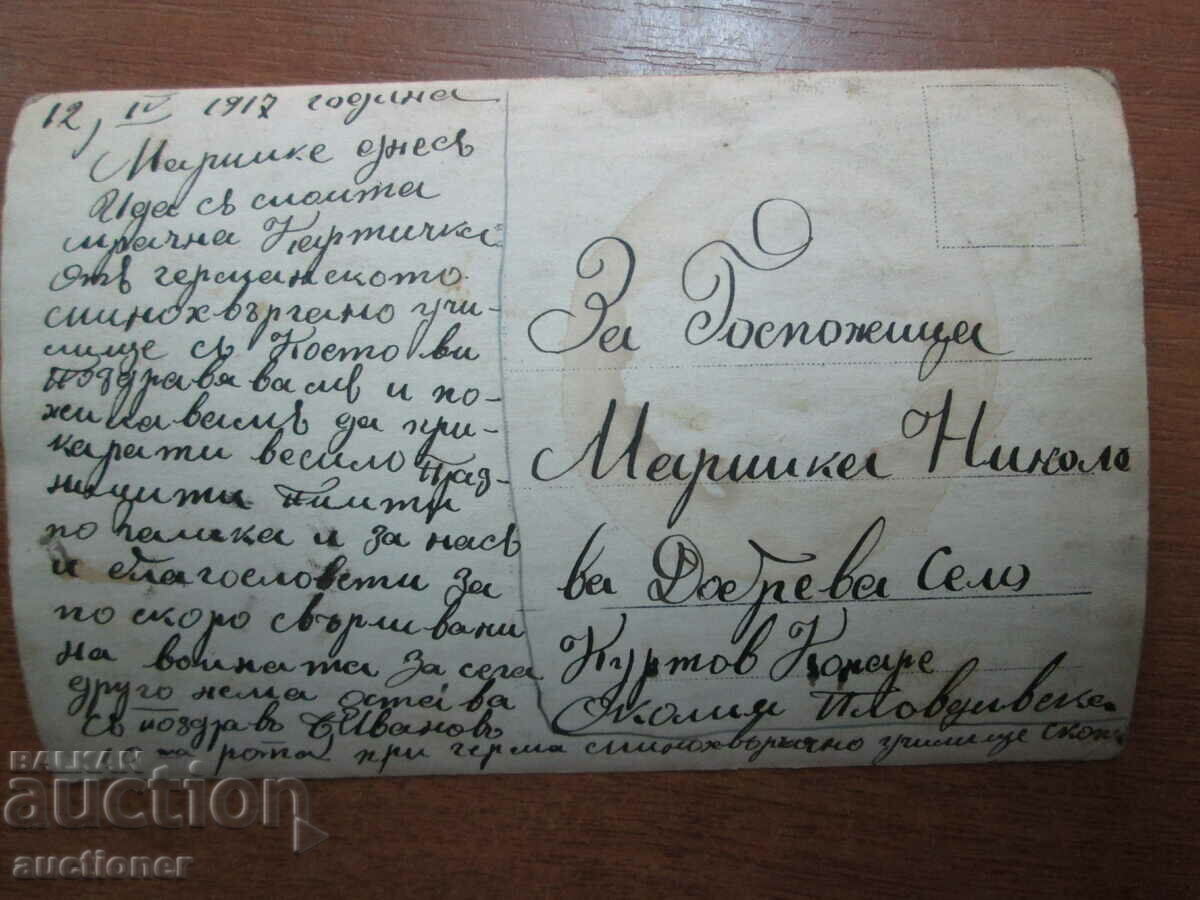 12, IV 1917 година
Маришке днесъ
Ида съ моита
мрачна Картичка
отъ германското
минохвъргано учи-
лище съ Косто ви
поздравяваме и по-
жилаваме да при-
карати весило Праз-
ницити
по чашка и за насъ
и благословети за
по скоро свърливани
на воината За сега
друго нема остава
Съ поздравъ Б Ивановъ
рота при герма минохворгачно училище скоп
За Госпожица
Маришка Никола
ва Добрева Село
Куртов Конаре
Околия Пловдивска
BALKAN
auction
auctioner